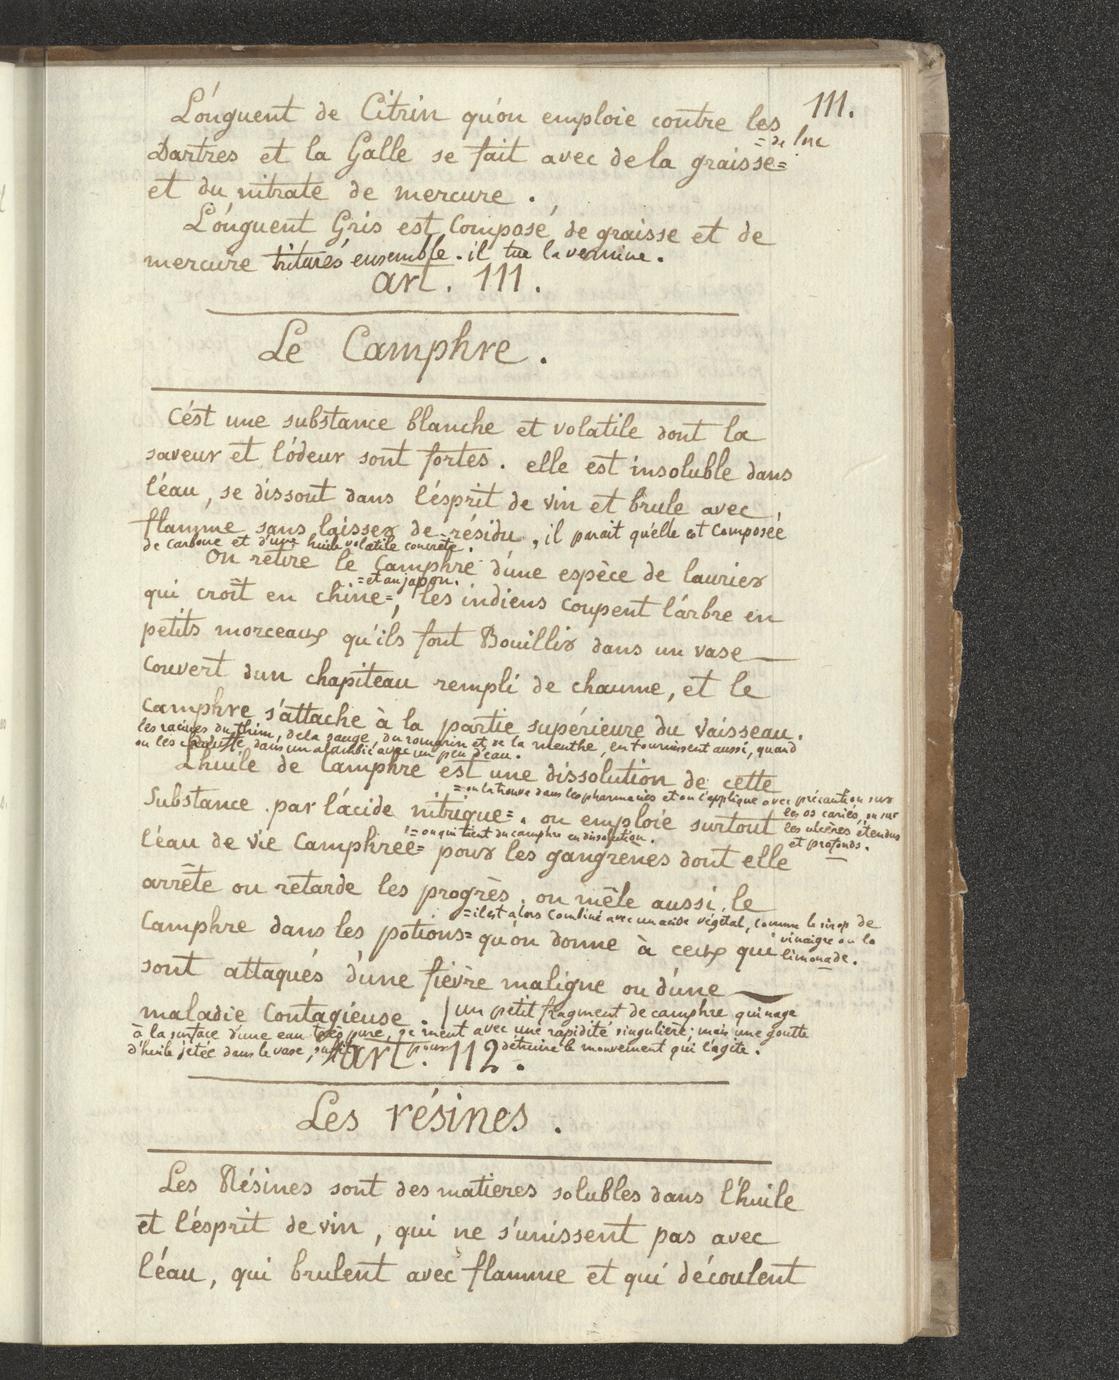 111.
L'onguent de Citrin qu'on emploie contre les
Dartres et la Galle se fait avec de la graisse=
et du nitrate de mercure .
L'onguent Gris est Composé de graisse et de
mercure triturés ensemble. il tue la vermine.
art. 111.
Le Camphre.
C'est une substance blanche et volatile dont la
saveur et l'odeur sont fortes. elle est insoluble dans
l'éau, se dissout dans l'ésprit de vin et brule avec
flamme sans laisser de résidu, il parait qu'elle est Composée
de carbone et d'une huile volatile concrète.
On retire le Camphre d'une espèce de laurier
=et au japon.
qui croît en chine=, les indiens coupent l'arbre en
petits morceaux qu'ils font Bouillir dans un vase
Couvert d'un chapiteau rempli de chaume, et le
Camphre s'attache à la partie supérieure du vaisseau.
les racines du thim, de la sauge, du romarin et de la menthe, en fournissent aussi, quand
ou les distille dans un alambic avec un peu d'eau.
L'huile de Camphre est une dissolution de cette
=on la trouve dans les pharmacies et on l'applique avec précaution sur
les os cariés, ou sur
les ulcères étendus
et profonds.
Substance par l'ácide nitrique=. on emploie surtout
=ou qui tient du camphre en dissolution.
l'éau de vie Camphrée= pour les gangrenes dont elle
arrête ou retarde les progrès. on mêle aussi le
=il est alors Combiné avec un acide végétal, comme le sirop de
vinaigre ou la
limonade.
Camphre dans les potions= qu'on donne à ceux qui
sont attaqués d'une fièvre maligne ou d'une
maladie Contagieuse. / un petit fragment de camphre qui nage
à la surface d'une eau très pure, se meut avec une rapidité singulière; mais une goutte
d'huile jetée dans le vase, suffit pour détruire le mouvement qui l'agite.
art. 112.
Les résines.
Les Résines sont des matieres solubles dans l'huile
et l'ésprit de vin, qui ne s'unissent pas avec
l'éau, qui brulent avec flamme et qui découlent